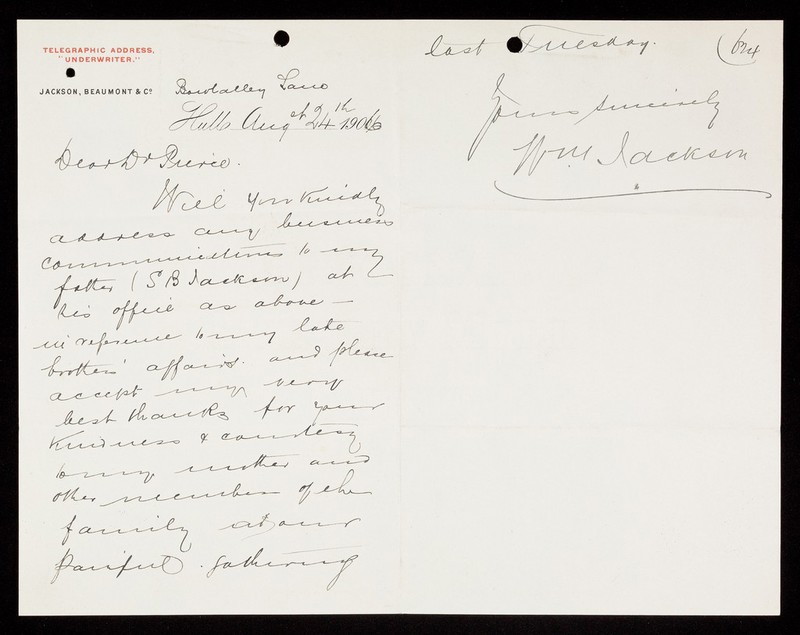 TELEGRAPHIC ADDRESS,
"UNDERWRITER."
JACKSON, BEAUMONT & Co
Bowlalley Lane
Hull Augst 24th 1906
Dear Dr Pierce.
Will you kindly
address any business
communications to my
father (S B Jackson) at
his office as above —
in reference to my late
brothers' affairs. and please
accept my very
best thanks for your
kindness & courtesy
to my mother and
other members of the
family at our
painful gathering
last Tuesday.
Yours sincerely
Wm Jackson